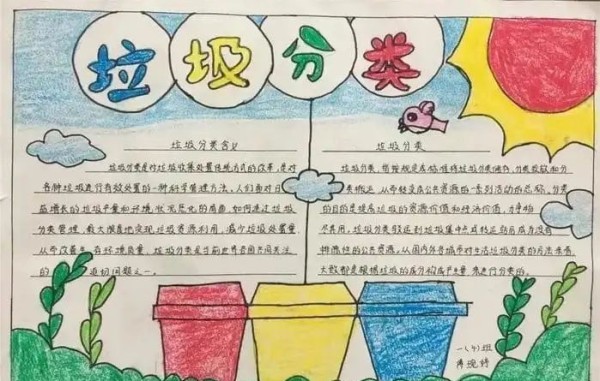 垃圾分类
垃圾分类含义
垃圾分类是对垃圾收集处置传统方式的改革,是对
各种垃圾进行有效处置的一种科学管理方法,人们面对日
益增长的垃圾产量和环境状况恶化的局面,如何通过垃圾
分类管理,最大限度地实现垃圾资源利用,减少垃圾处置量
从而改善生存环境质量,垃圾分类是当前世界各国共同关注
的迫切问题之一。
垃圾分类
垃圾分类,指按规定或标准将垃圾分类储存,分类投放和分
类搬运,从而转变成公共资源的一系列活动的总称,分类
的目的是提高垃圾的资源价值和经济价值,力争物
尽其用,垃圾分类
排他性的公共资源,从国内外各城市对生活垃圾分类的方法来看
大致都是根据垃圾的成分构成产生量来进行分类的。
一(4)班